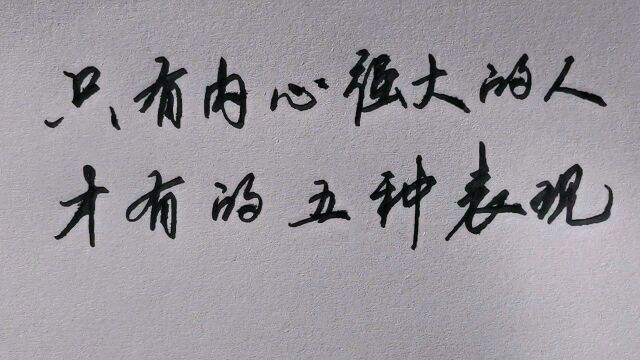 只有内心强大的人
才有的五种表现